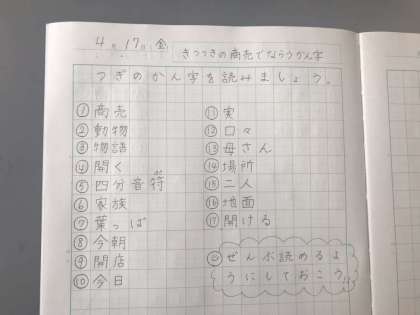 4月17日 金
きつつきの商売でならうかん字
つぎのかん字を読みましょう。
①商売
②動物
③物語
④聞く
⑤四分音符
⑥家族
⑦葉っぱ
⑧今朝
⑨開店
⑩今日
⑪実
⑫口々
⑬母さん
⑭場所
⑮二人
⑯地面
⑰開ける
ぜんぶ読めるよ
うにしておこう。